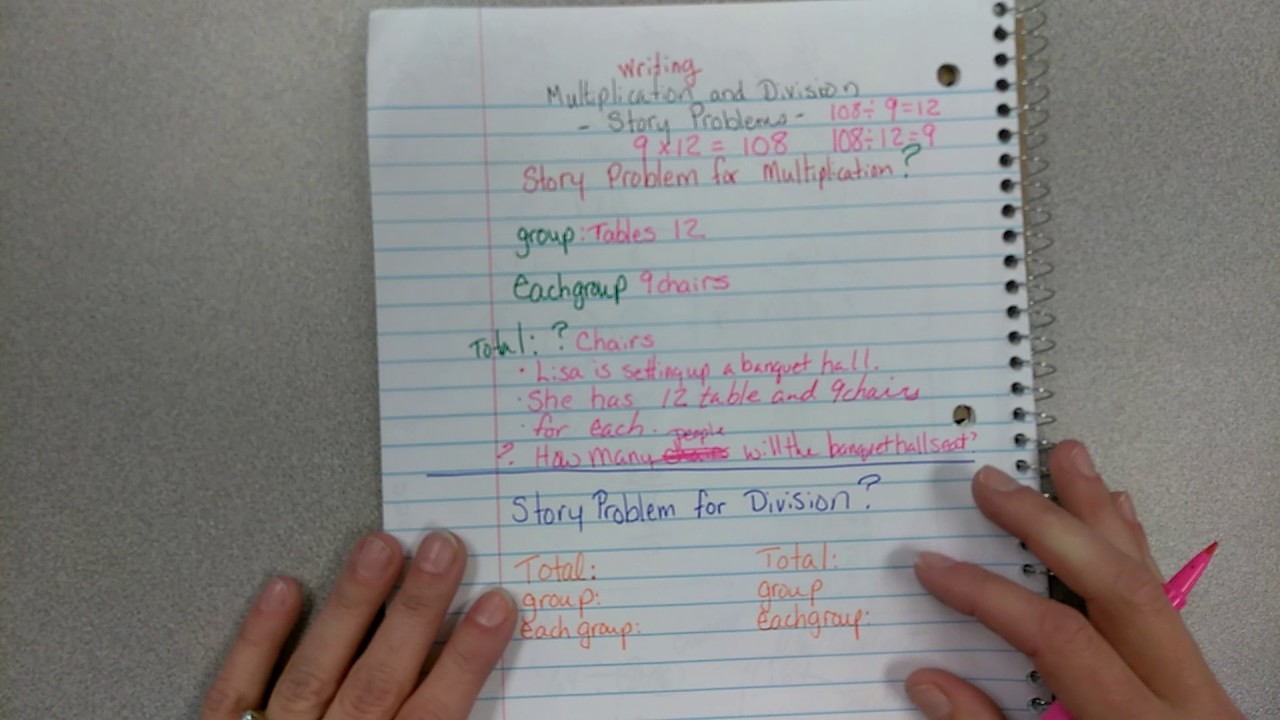 Writing
Multiplication and Division
- Story Problems - 108÷9=12
9 x 12 = 108 108÷12=9
Story Problem for Multiplication?
group: Tables 12
Each group 9 chairs
Total: ? Chairs
· Lisa is setting up a banquet hall.
· She has 12 table and 9 chairs
· for each.
people
? How many chairs will the banquet hall seat?
Story Problem for Division?
Total: Total:
group: group
Each group: Each group: